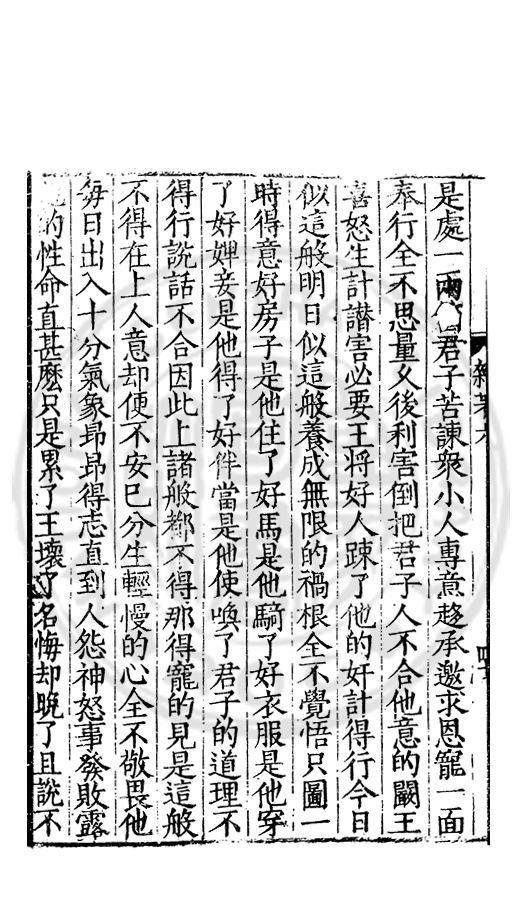 是處一兩君子苦諫衆小人專意趍承邀求恩寵一面
奉行全不思量久後利害倒把君子人不合他意的闞王
喜怒生計譛害必要王将好人踈了他的奸計得行今日
似這般明日似這般養成無限的禍根全不覺悟只圖一
時得意好房子是他住了好馬是他騎了好衣服是他穿
了好婢妾是他得了好伴當是他使喚了君子的道理不
得行説話不合因此上諸般都不得那得寵的見是這般
不得在上人意却便不安已分生輕慢的心全不敬畏他
每日出入十分氣象昻昻得志直到人怨神怒事發敗露
的性命直甚麽只是累了王壊了名悔却晚了且説不